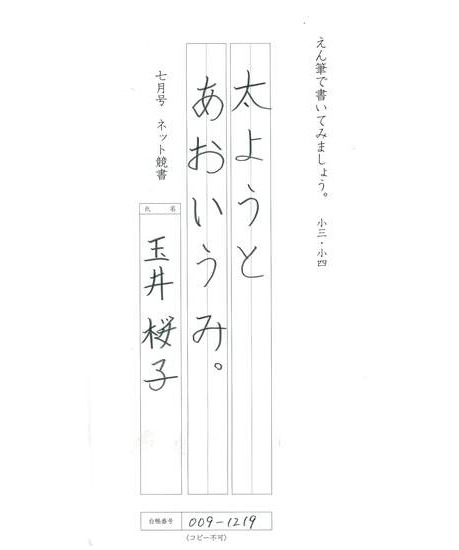 えん筆で書いてみましょう。 小三・小四
太ようと
あおいうみ。
七月号 ネット競書
氏名
玉井桜子
台帳番号 009-1219
(コピー不可)